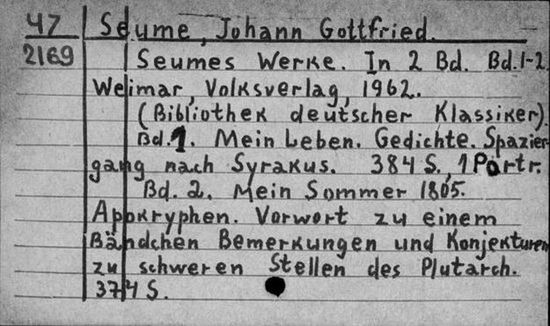 47 Seume, Johann Gottfried.
2169 Seumes Werke. In 2 Bd. Bd.1-2.
Weimar, Volksverlag, 1962.
(Bibliothek deutscher Klassiker).
Bd.1. Mein Leben. Gedichte. Spazier-
gang nach Syrakus. 384 S., 1 Portr.
Bd. 2. Mein Sommer 1805.
Apokryphen. Vorwort zu einem
Bändchen Bemerkungen und Konjekturen
zu schweren Stellen des Plutarch.
374 S.